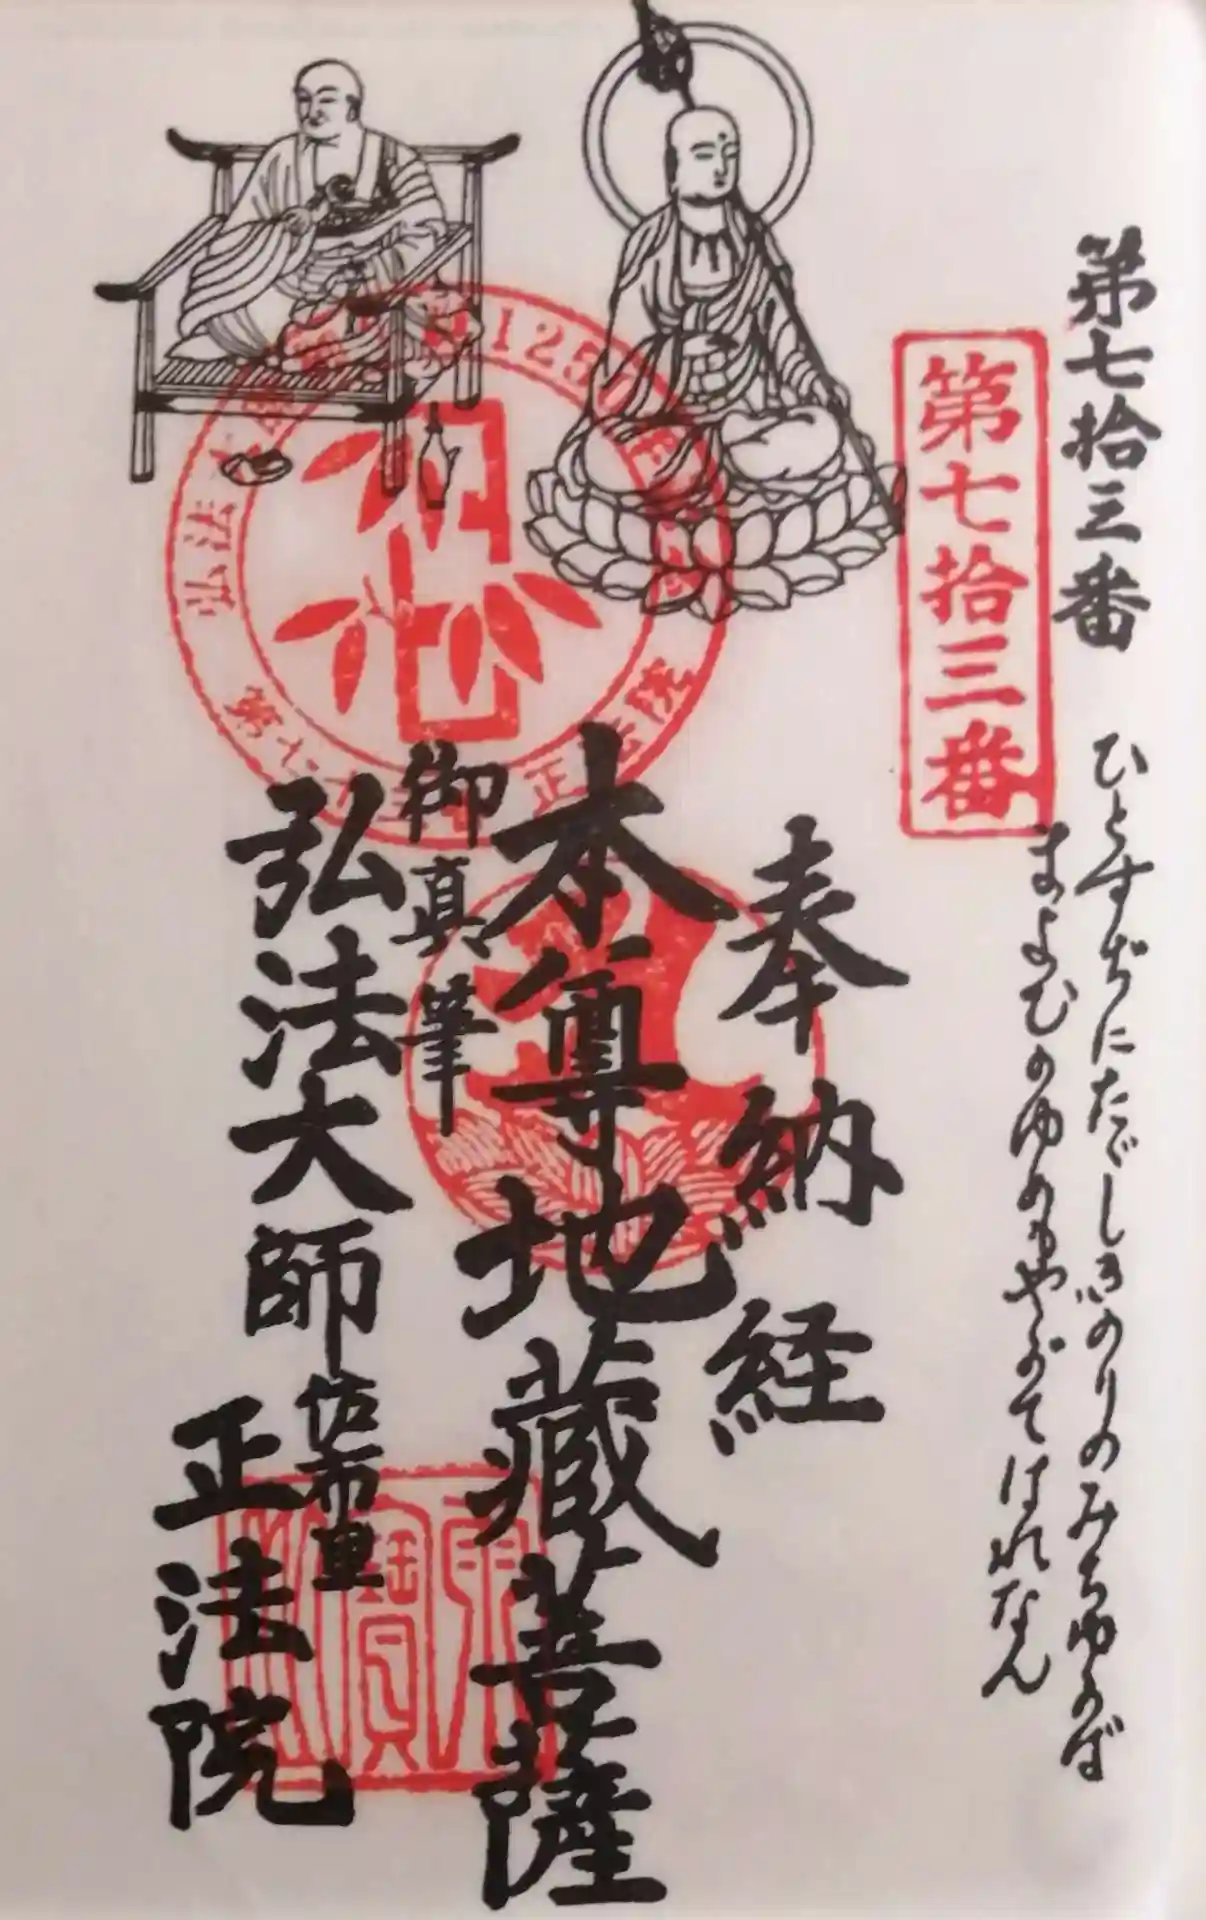 第七拾三番
ひとすぢにただしきのりのみちゆかば
まよひのゆめもやがてはれなん
第七拾三番
奉納経
本尊地蔵菩薩
御真筆
弘法大師
佐布里
正法院
弘法大
1250
第七十三
正法院
寶